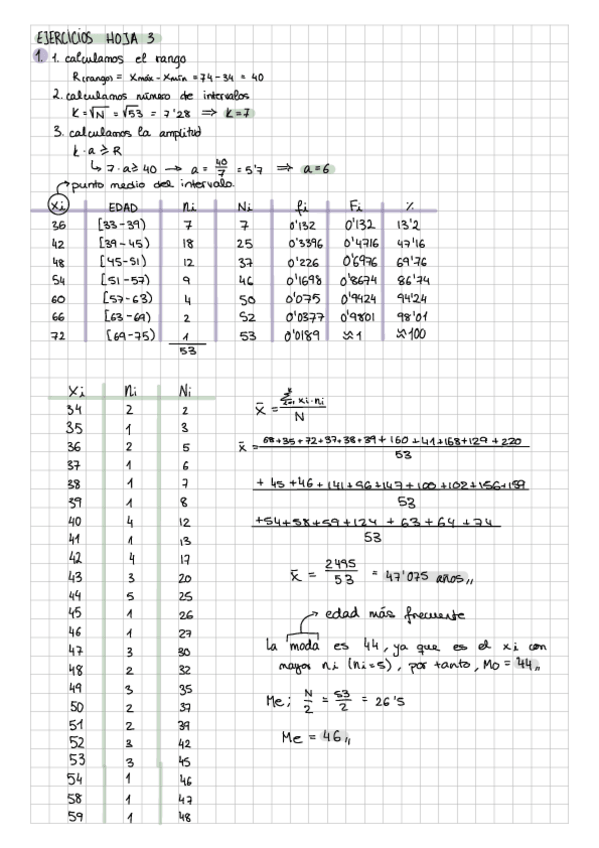 EJERCICIOS HOJA 3
1. 1. calculamos el rango
R(rango) = Xmáx - Xmín = 74 - 34 = 40
2. calculamos número de intervalos
K = √N = √53 = 7'28 ⇒ K = 7
3. calculamos la amplitud
K · a ≥ R
↳ 7 · a ≥ 40 → a = 40/7 = 5'7 ⇒ a = 6
punto medio del intervalo.
Xi EDAD ni Ni fi Fi %
36 [33-39) 7 7 0'132 0'132 13'2
42 [39-45) 18 25 0'3396 0'4716 47'16
48 [45-51) 12 37 0'226 0'6976 69'76
54 [51-57) 9 46 0'1698 0'8674 86'74
60 [57-63) 4 50 0'075 0'9424 94'24
66 [63-69) 2 52 0'0377 0'9801 98'01
72 [69-75) 1 53 0'0189 ≈1 ≈100
53
Xi ni Ni
34 2 2
35 1 3
36 2 5
37 1 6
38 1 7
39 1 8
40 4 12
41 1 13
42 4 17
43 3 20
44 5 25
45 1 26
46 1 27
47 3 30
48 2 32
49 3 35
50 2 37
51 2 39
52 3 42
53 3 45
54 1 46
58 1 47
59 1 48
x̄ = Σ xi · ni / N
x̄ = 68+35+72+37+38+39+160+41+168+129+220 / 53
+45+46+141+96+147+100+102+156+159 / 53
+54+58+59+124+63+64+74 / 53
x̄ = 2495 / 53 = 47'075 años,,
edad más frecuente
La moda es 44, ya que es el xi con
mayor ni (ni=5), por tanto, Mo = 44,,
Me; N/2 = 53/2 = 26'5
Me = 46,,